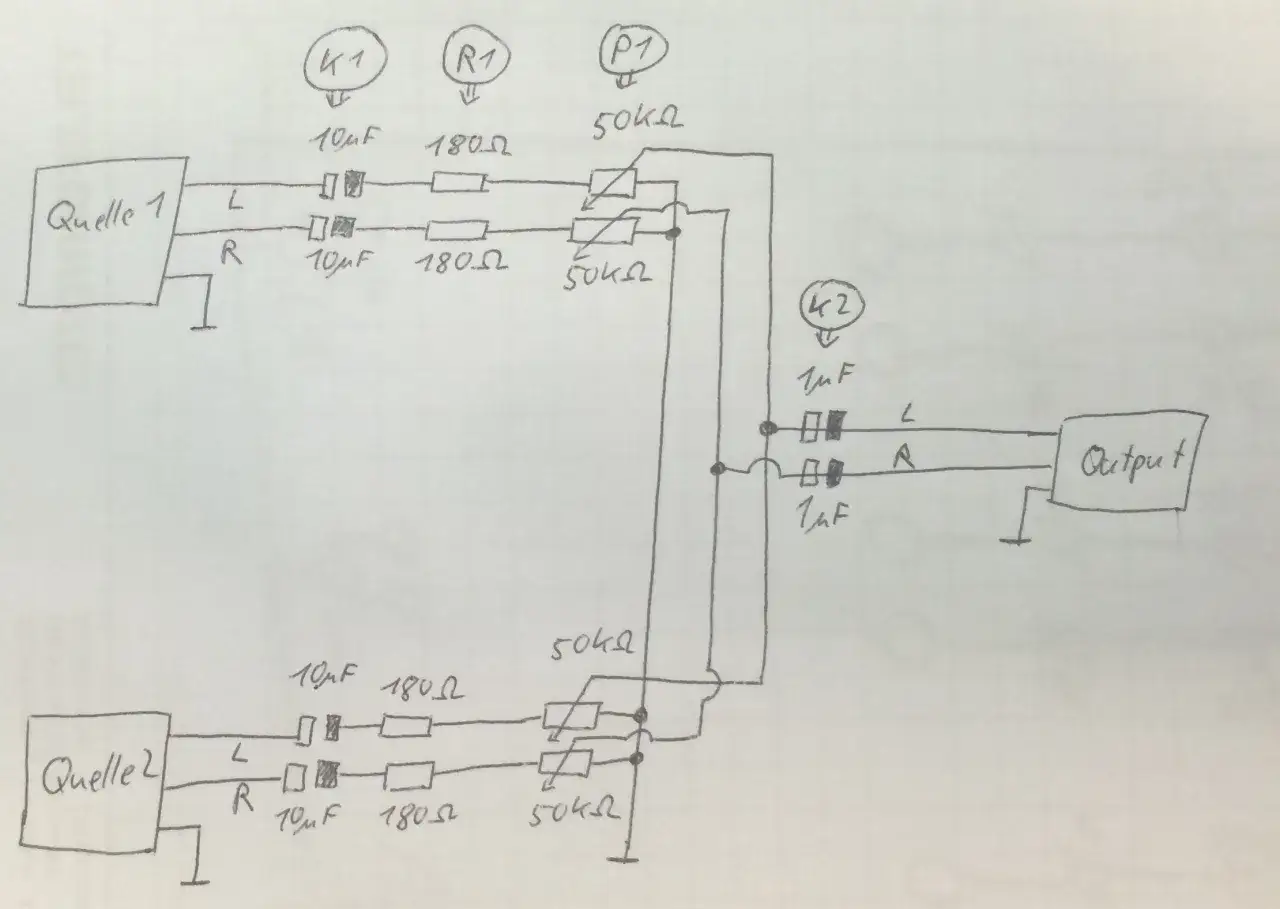 K1
R1
P1
10µF
180Ω
50KΩ
Quelle 1
L
R
10µF
180Ω
50KΩ
K2
1µF
L
R
Output
1µF
50KΩ
10µF
180Ω
Quelle 2
L
R
10µF
180Ω
50KΩ